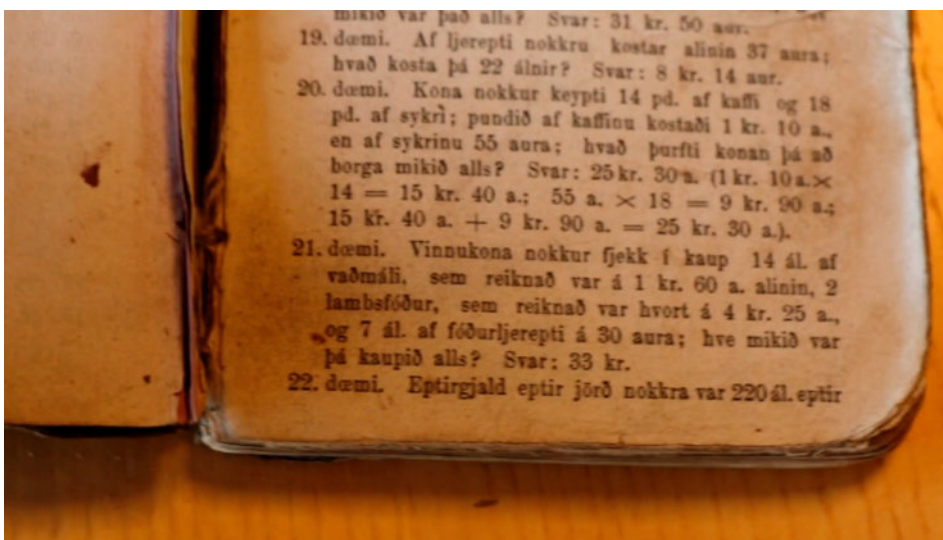 mikið var það alls? Svar: 31 kr. 50 aur.
19. dœmi. Af ljerepti nokkru kostar alinin 37 aura;
hvað kosta þá 22 álnir? Svar: 8 kr. 14 aur.
20. dœmi. Kona nokkur keypti 14 pd. af kaffi og 18
pd. af sykri; pundið af kaffinu kostaði 1 kr. 10 a.,
en af sykrinu 55 aura; hvað þurfti konan þá að
borga mikið alls? Svar: 25 kr. 30 a. (1 kr. 10 a. ×
14 = 15 kr. 40 a.; 55 a. × 18 = 9 kr. 90 a.;
15 kr. 40 a. + 9 kr. 90 a. = 25 kr. 30 a.).
21. dœmi. Vinnukona nokkur fjekk í kaup 14 ál. af
vaðmáli, sem reiknað var á 1 kr. 60 a. alinin, 2
lambsfóður, sem reiknað var hvort á 4 kr. 25 a.,
og 7 ál. af fóðurljerepti á 30 aura; hve mikið var
þá kaupið alls? Svar: 33 kr.
22. dœmi. Eptirgjald eptir jörð nokkra var 220 ál. eptir